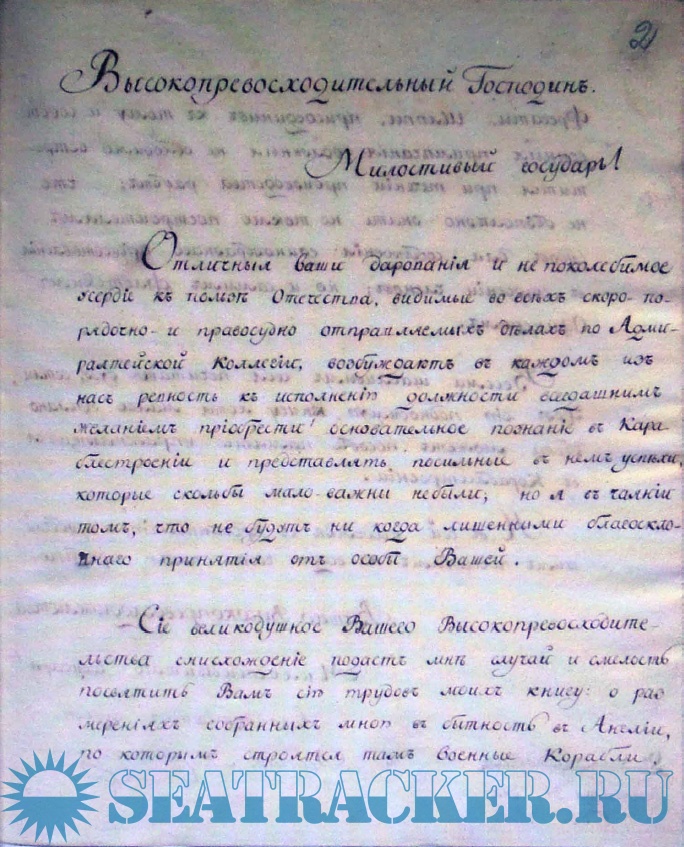 2
Высокопревосходительный Господинъ.
Милостивый государь!
Отличныя ваши дарованія и не поколебимое
усердіе къ пользѣ Отечества, видимые во всѣхъ скоро-по-
рядочно- и правосудно отправляемыхъ дѣлахъ по Адми-
ралтейской Коллегіи, возбуждаютъ въ каждомъ изъ
насъ ревность къ исполненію должности всегдашнимъ
желаніемъ пріобрести основательное познаніе въ Кара-
блестроеніи и представлять посильные въ немъ успѣхи,
которые сколькбы мало-важни небыли; но я въ чаяніи
томъ, что не будутъ ни когда лишенными благоскло-
ннаго принятія отъ особы Вашей.
Сіе великодушное Вашего Высокопревосходите-
льства снисхожденіе подастъ мнѣ случай и смелость
посвятить Вамъ сію трудовъ моихъ книгу: о раз
мереніяхъ собранныхъ мною въ бытность въ Англіи,
по которымъ строятся тамъ военные Корабли,
SEATRACKER.RU